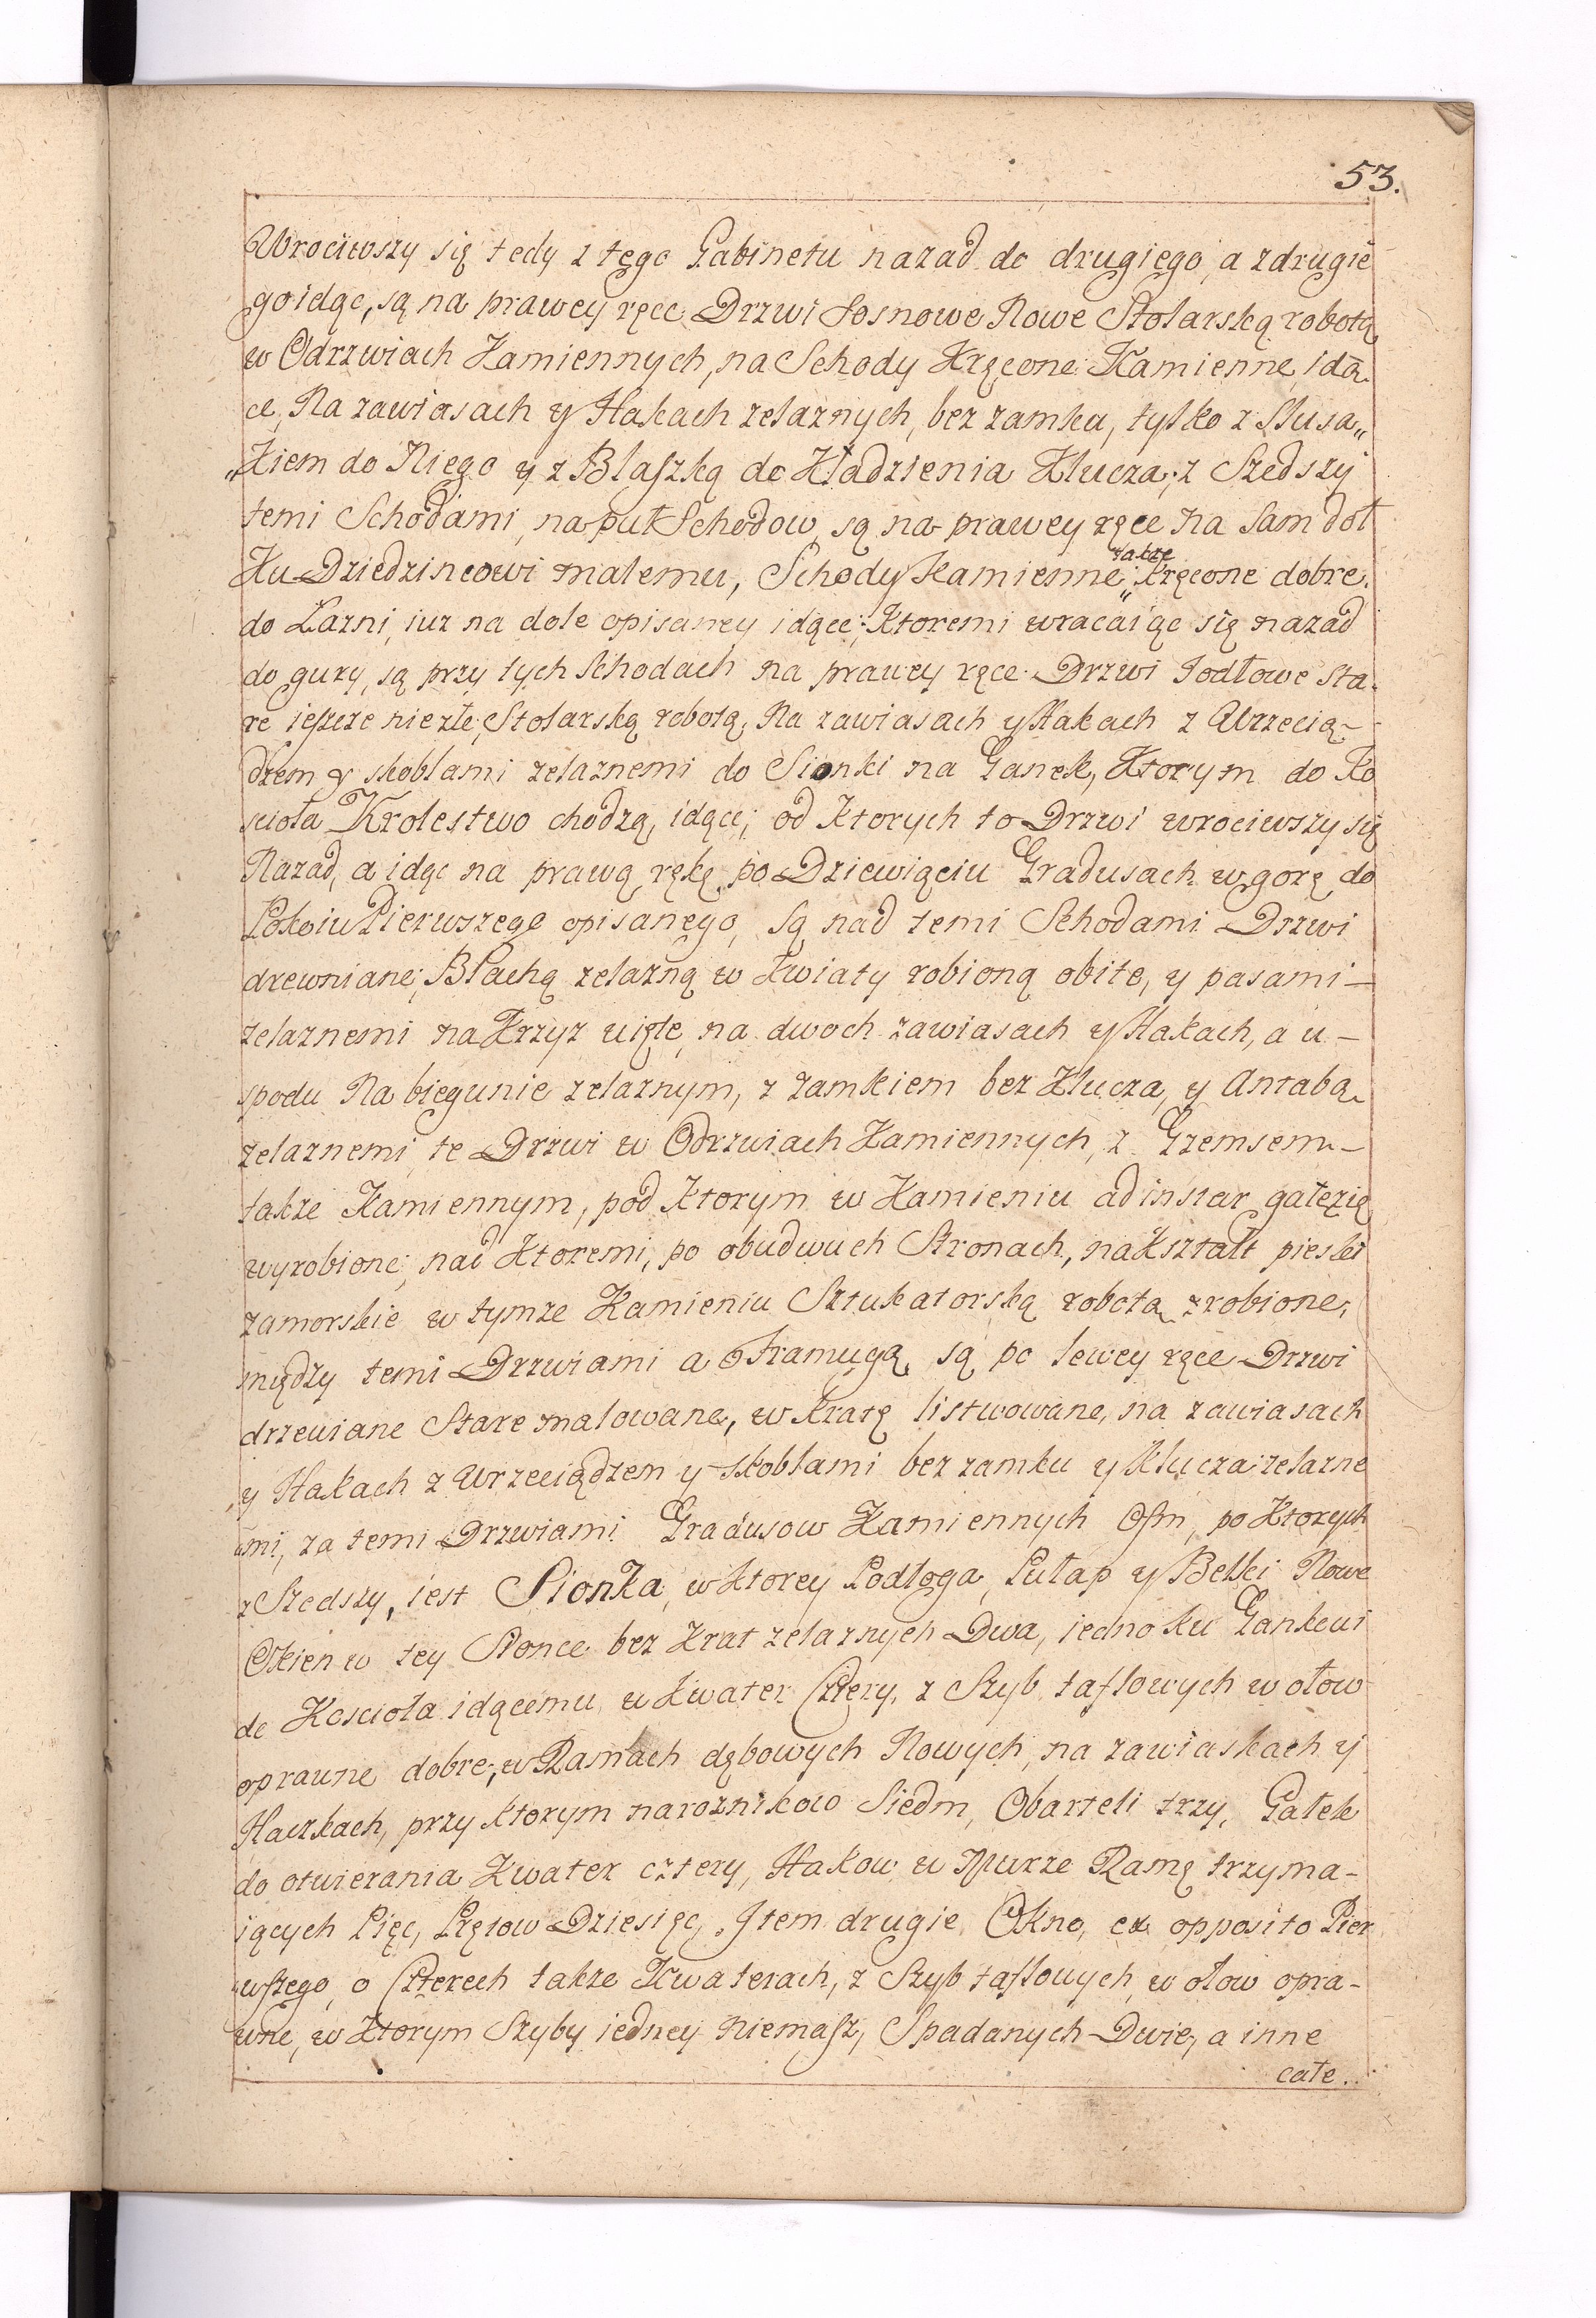 53.
Wrociwszy się tedy z tego Gabinetu nazad do drugiego, a zdrugie
go idąc, są na prawey ręce Drzwi Sosnowe Nowe Stolarską robotą
w Odrzwiach Kamiennych, na Schody Kręcone Kamienne idą,
ce, Na zawiasach y Hakach zelaznych, bez zamku, tylko z Slusa„
„kiem do Niego y z Blaszką do Kładzienia Klucza; z Szedszy
temi Schodami, na puł Schodow, są na prawey ręce na sam doł
Ku Dziedzincowi małemu, Schody Kamienne „ takze kręcone dobre
do Łazni, iuz na dole opisaney idące; Ktoremi wracaiąc się nazad
do gury, są przy tych Schodach na prawey ręce Drzwi Jodłowe Sta,
re ieszcze niezłe, Stolarską robotą, Na zawiasach y Hakach z Wrzecią-
dzem y skoblami zelaznemi do Sionki na Ganek, Ktorym do Ko
scioła Krolestwo chodzą, idące; od Ktorych to Drzwi wrociwszy się
Nazad, a idąc na prawą rękę po Dziewiąciu Gradusach w gorę do
Pokoiu Pierwszego opisanego, są nad temi Schodami Drzwi
drewniane, Blachą zelazną w Kwiaty robioną obite, y pasami –
zelaznemi na Krzyz uięte, na dwoch zawiasach y Hakach, a u –
spodu Na biegunie zelaznym, z zamkiem bez Klucza, y Antabą
zelaznemi te Drzwi w Odrzwiach Kamiennych, z Gzemsem –
takze Kamiennym, pod Ktorym w Kamieniu ad instar gałęzie
wyrobione, nad Ktoremi, po obudwuch Stronach, na Kształt pieski
zamorskie w tymze Kamieniu Sztukatorską robotą zrobione,
między temi Drzwiami a Framugą, są po lewey ręce Drzwi
drzewiane Stare malowane, w Kratę listwowane, na zawiasach
y Hakach z Wrzeciądzem y skoblami bez zamku y Klucza zelazne
„mi, za temi Drzwiami Gradusow Kamiennych Osm, po Ktorych
z Szedszy, iest Sionka, w Ktorey Podłoga, Pułap y Belki Nowe
Okien w tey Sionce bez Krat zelaznych Dwa, iedno ku Gankowi
do Kosciola idącemu, w Kwater Cztery, z Szyb taflowych w ołow
oprawne dobre, w Ramach dębowych Nowych, na zawiaskach y
Haczkach, przy ktorym naroznikow Siedm, Obarteli trzy, Gałek
do otwierania Kwater cztery, Hakow w Murze Ramę trzyma-
iących Pięc, Prętow Dziesięc, Item drugie Okno, ex opposito Pier
„wszego, o Czterech takze Kwaterach, z Szyb taflowych, w ołow opra-
wne, w Ktorym Szyby iedney niemasz, Spadanych Dwie, a inne
całe..